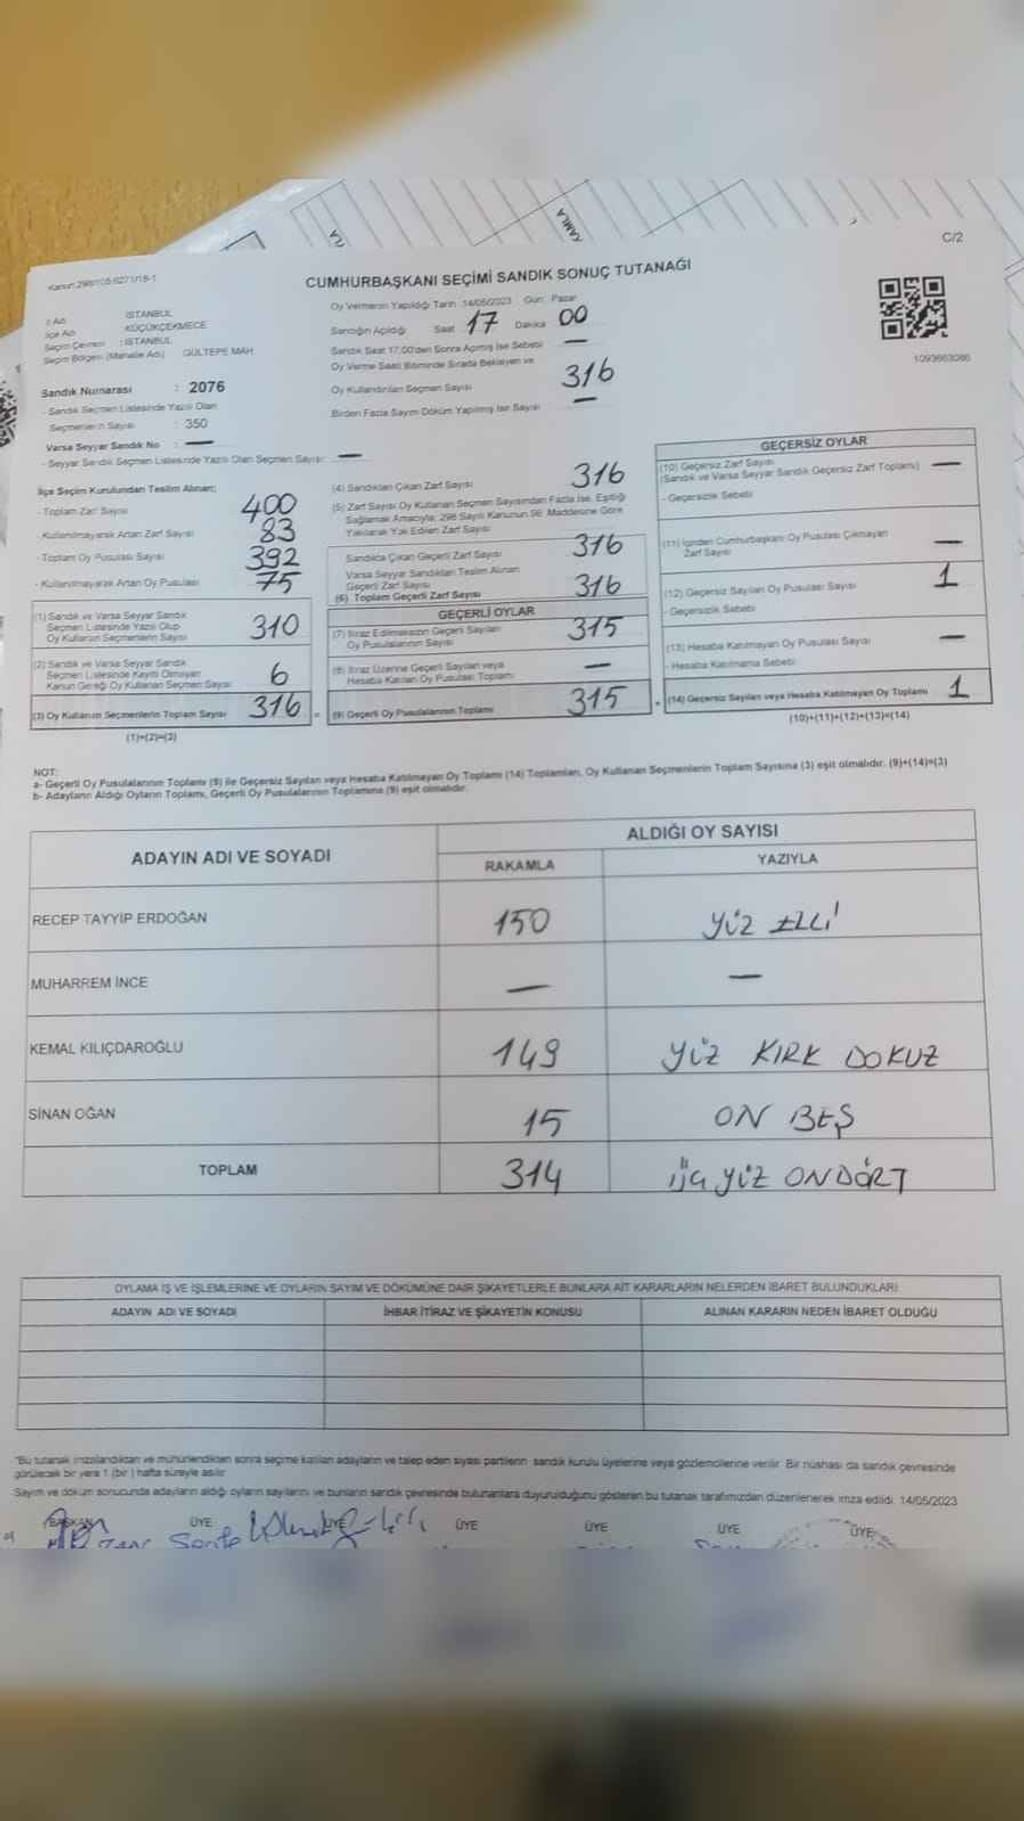 C/2
CUMHURBAŞKANI SEÇİMİ SANDIK SONUÇ TUTANAĞI
Oy Vermenin Yapıldığı Tarih 14/05/2023 Gün: Pazar
Sandığın Açıldığı Saat 17 Dakika 00
Sandık Saat 17.00'den Sonra Açılmış İse Sebebi —
Oy Verme Saati Bitiminde Sırada Bekleyen ve
Oy Kullandırılan Seçmen Sayısı 316
Birden Fazla Sayım Döküm Yapılmış İse Sayısı —
1093663086
İl Adı : İSTANBUL
İlçe Adı KÜÇÜKÇEKMECE
Seçim Çevresi : İSTANBUL
Seçim Bölgesi (Mahalle Adı) GÜLTEPE MAH
Sandık Numarası : 2076
- Sandık Seçmen Listesinde Yazılı Olan
Seçmenlerin Sayısı : 350
Varsa Seyyar Sandık No : —
- Seyyar Sandık Seçmen Listesinde Yazılı Olan Seçmen Sayısı: —
İlçe Seçim Kurulundan Teslim Alınan;
- Toplam Zarf Sayısı 400
- Kullanılmayarak Artan Zarf Sayısı 83
- Toplam Oy Pusulası Sayısı 392
- Kullanılmayarak Artan Oy Pusulası 75
(1) Sandık ve Varsa Seyyar Sandık
Seçmen Listesinde Yazılı Olup
Oy Kullanan Seçmenlerin Sayısı 310
(2) Sandık ve Varsa Seyyar Sandık
Seçmen Listesinde Kayıtlı Olmayan
Kanun Gereği Oy Kullanan Seçmen Sayısı 6
(3) Oy Kullanan Seçmenlerin Toplam Sayısı 316
(1)+(2)=(3)
(4) Sandıktan Çıkan Zarf Sayısı 316
(5) Zarf Sayısı Oy Kullanan Seçmen Sayısından Fazla İse, Eşitliği
Sağlamak Amacıyla, 298 Sayılı Kanunun 98. Maddesine Göre
Yakılarak Yok Edilen Zarf Sayısı
Sandıkta Çıkan Geçerli Zarf Sayısı 316
Varsa Seyyar Sandıktan Teslim Alınan
Geçerli Zarf Sayısı
(6) Toplam Geçerli Zarf Sayısı 316
GEÇERLİ OYLAR
(7) İtiraz Edilmeksizin Geçerli Sayılan
Oy Pusulalarının Sayısı 315
(8) İtiraz Üzerine Geçerli Sayılan veya
Hesaba Katılan Oy Pusulası Toplamı —
(9) Geçerli Oy Pusulalarının Toplamı 315
GEÇERSİZ OYLAR
(10) Geçersiz Zarf Sayısı
(Sandık ve Varsa Seyyar Sandık Geçersiz Zarf Toplamı) —
- Geçersizlik Sebebi
(11) İçinden Cumhurbaşkanı Oy Pusulası Çıkmayan
Zarf Sayısı —
(12) Geçersiz Sayılan Oy Pusulası Sayısı 1
- Geçersizlik Sebebi
(13) Hesaba Katılmayan Oy Pusulası Sayısı —
- Hesaba Katılmama Sebebi
(14) Geçersiz Sayılan veya Hesaba Katılmayan Oy Toplamı 1
(10)+(11)+(12)+(13)=(14)
NOT:
a- Geçerli Oy Pusulalarının Toplamı (9) ile Geçersiz Sayılan veya Hesaba Katılmayan Oy Toplamı (14) Toplamları, Oy Kullanan Seçmenlerin Toplam Sayısına (3) eşit olmalıdır. (9)+(14)=(3)
b- Adayların Aldığı Oyların Toplamı, Geçerli Oy Pusulalarının Toplamına (9) eşit olmalıdır.
ADAYIN ADI VE SOYADI ALDIĞI OY SAYISI
RAKAMLA YAZIYLA
RECEP TAYYİP ERDOĞAN 150 YÜZ ELLİ
MUHARREM İNCE — —
KEMAL KILIÇDAROĞLU 149 YÜZ KIRK DOKUZ
SİNAN OĞAN 15 ON BEŞ
TOPLAM 314 ÜÇ YÜZ ONDÖRT
OYLAMA İŞ VE İŞLEMLERİNE VE OYLARIN SAYIM VE DÖKÜMÜNE DAİR ŞİKAYETLERLE BUNLARA AİT KARARLARIN NELERDEN İBARET BULUNDUKLARI
ADAYIN ADI VE SOYADI İHBAR İTİRAZ VE ŞİKAYETİN KONUSU ALINAN KARARIN NEDEN İBARET OLDUĞU
*Bu tutanak imzalandıktan ve mühürlendikten sonra seçime katılan adayların ve talep eden siyasi partilerin sandık kurulu üyelerine veya gözlemcilerine verilir. Bir nüshası da sandık çevresinde
görülecek bir yere 1 (bir) hafta süreyle asılır.
Sayım ve döküm sonucunda adayların aldığı oyların sayılarını ve bunların sandık çevresinde bulunanlara duyurulduğunu gösteren bu tutanak tarafımızdan düzenlenerek imza edildi. 14/05/2023
BAŞKAN ÜYE ÜYE ÜYE ÜYE ÜYE ÜYE